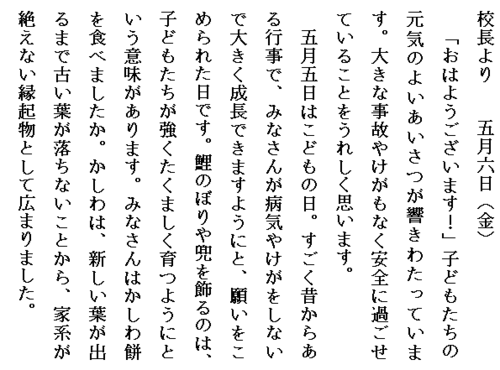 校長より　　五月六日（金）
　「おはようございます！」子どもたちの
元気のよいあいさつが響きわたっていま
す。大きな事故やけがもなく安全に過ごせ
ていることをうれしく思います。
　五月五日はこどもの日。すごく昔からあ
る行事で、みなさんが病気やけがをしない
で大きく成長できますようにと、願いをこ
められた日です。鯉のぼりや兜を飾るのは、
子どもたちが強くたくましく育つようにと
いう意味があります。みなさんはかしわ餅
を食べましたか。かしわは、新しい葉が出
るまで古い葉が落ちないことから、家系が
絶えない縁起物として広まりました。